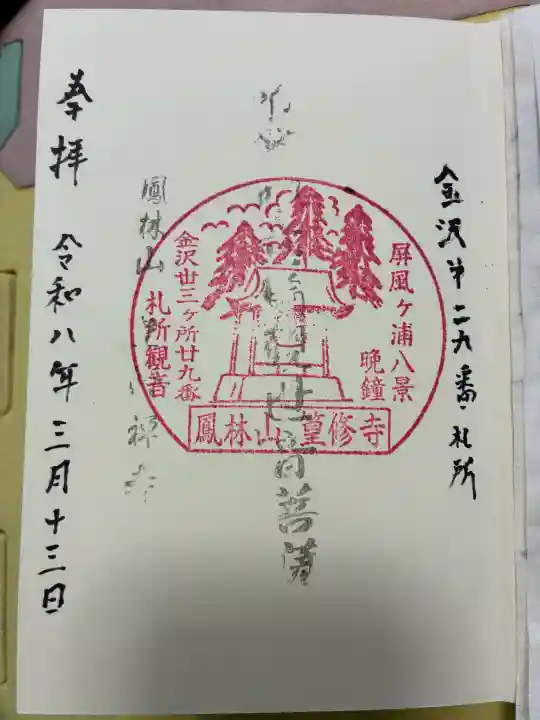 金沢第二九番札所
屏風ヶ浦八景
晩鐘
世音菩薩
札所観音
金沢丗三ヶ所廿九番
鳳林山
鳳林山
奉拝
令和八年三月十三日